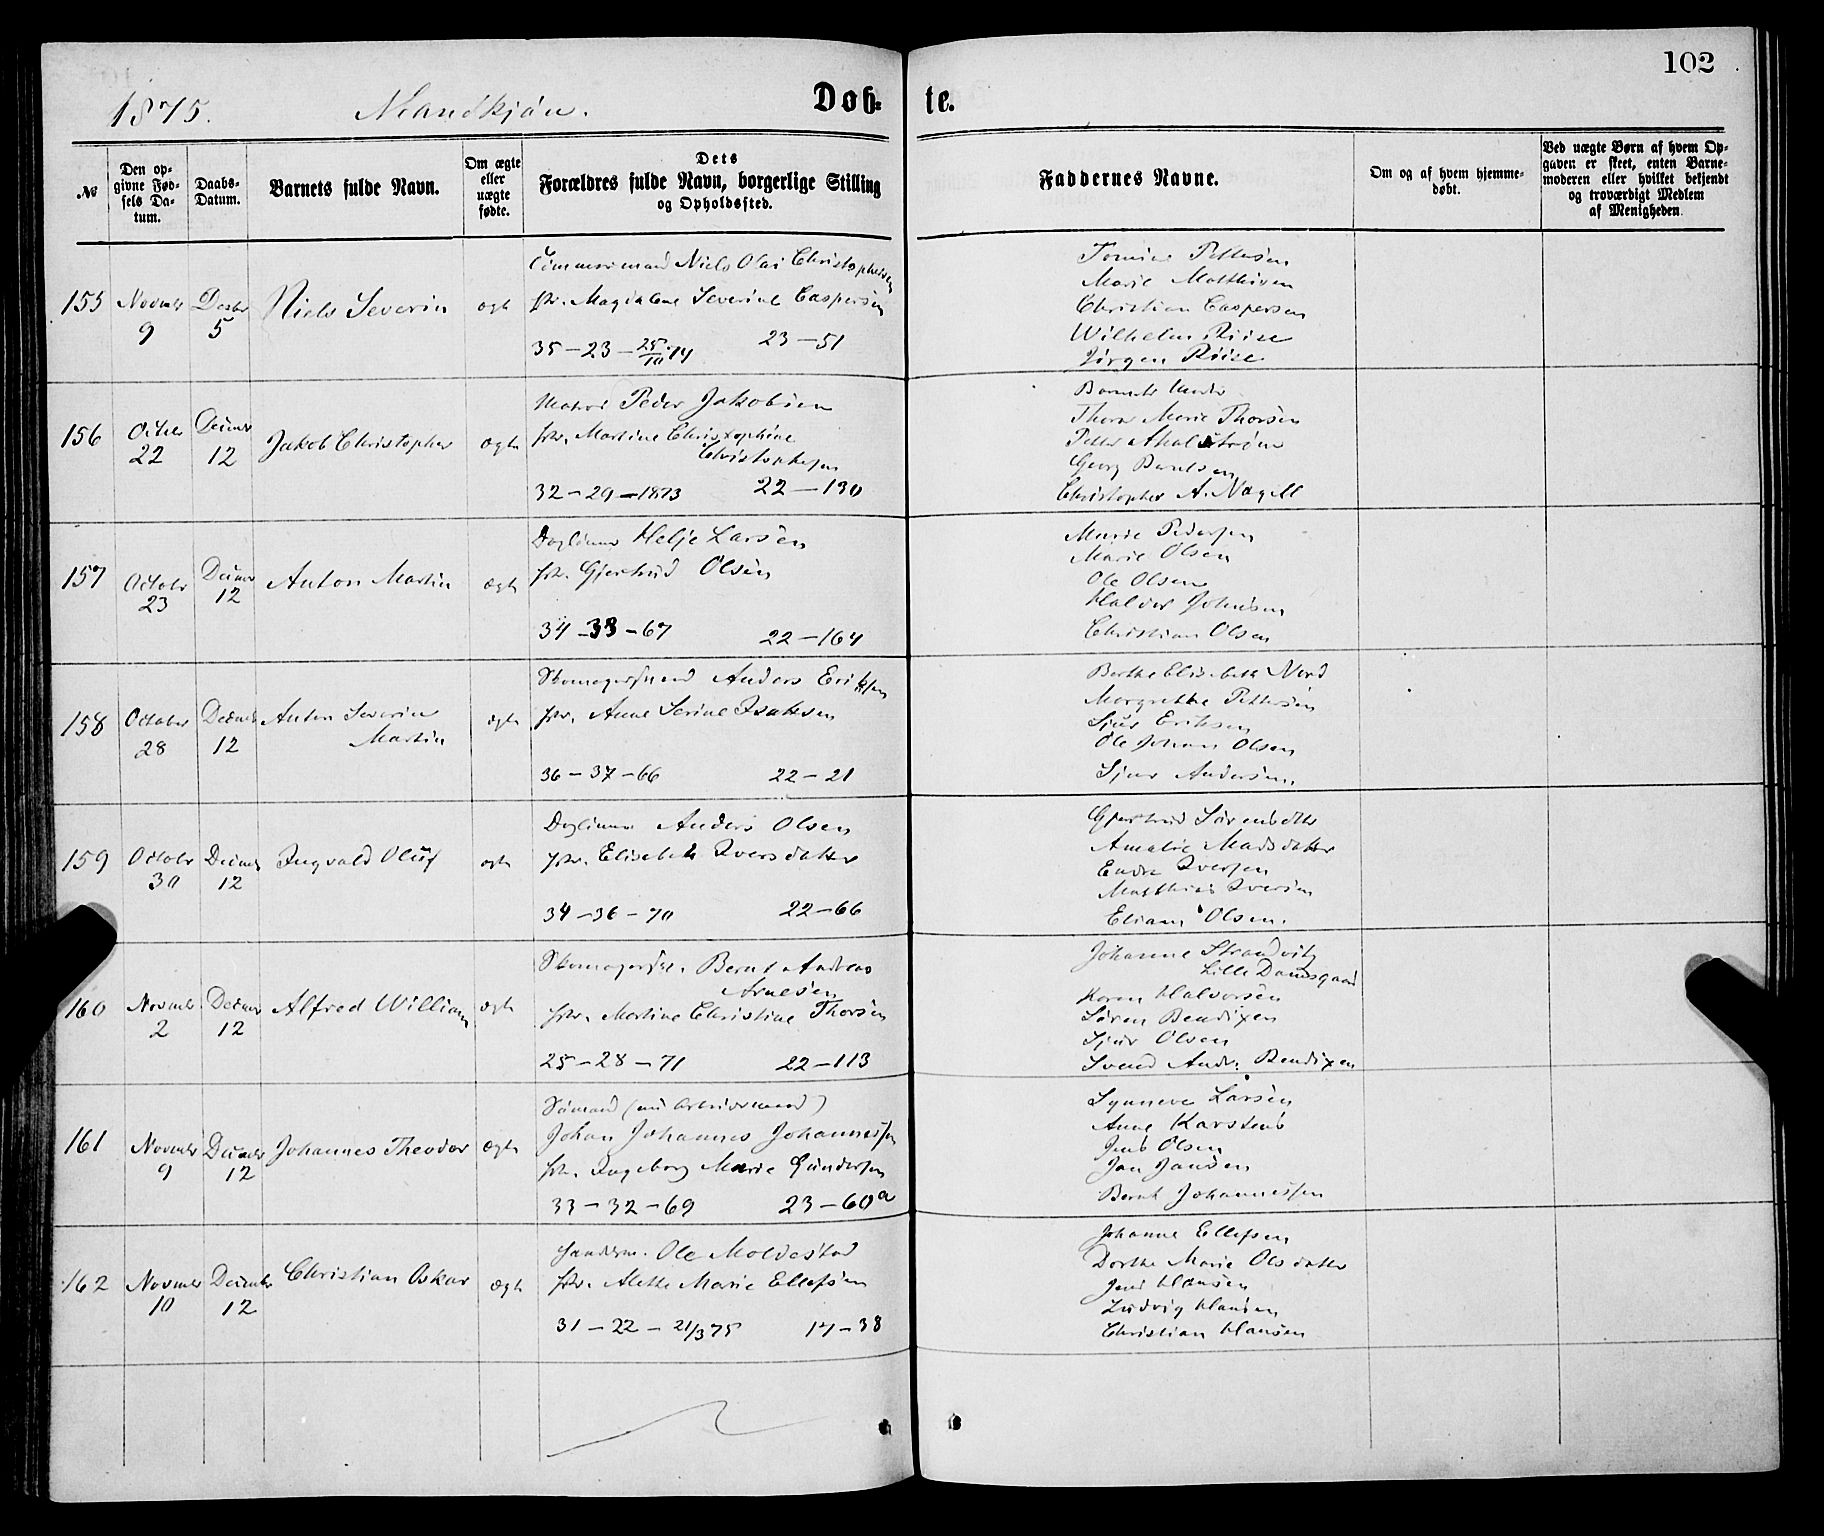 102
1875. Mandkjön. Döb- te.
№
Den op-
givne Fød-
sels Da-
tum.
Daabs-
Datum.
Barnets fulde Navn.
Om ægte
eller
uægte
fødte.
Dets
Forældres fulde Navn, borgerlige Stilling
og Opholdssted.
Faddernes Navne.
Om og af hvem hjemme-
døbt.
Ved uægte Børn af hvem Op-
gaven er skeet, enten Barne-
moderen eller hvilket bekjendt
og troværdigt Medlem
af Menigheden.
155 Novmbr 9 Decbr 5 Niels Severin ægte
Tömmermand Niels Olai Christophersen
Magdalene Severine Caspersen
35-23-25/10 74 23-51
Pettersen
Marie Matthisen
Christian Caspersen
Wilhelm Riise
Jørgen Riise
156 Octbr 22 Decmbr 12 Jakob Christopher ægte
Matros Peder Jakobsen
Martine Christophine
Christophersen
32-29-1873 22-130
Barnets Moder
Thora Marie Thorsen
Georg Berntsen
Christopher A. Nagell
157 Octobr 23 Decmbr 12 Anton Martin ægte
Daglönner Helje Larsen
Gjertrud Olsen
34-33-67 22-164
Marie Pedersen
Marie Olsen
Ole Olsen
Halvor Johnsen
Christian Olsen
158 October 28 Decmbr 12 Anton Severin
Martin ægte
Skomagersvend Anders Eriksen
Anne Serine Isaksen
36-37-66 22-21
Berthe Elisabeth Nord
Margrethe Pettersen
Sjur Eriksen
Ole Johan Olsen
Sjur Andersen
159 Octobr 30 Decmbr 12 Ingvald Oluf ægte
Daglönner Anders Olsen
Elisabeth Iversdatter
34-36-70 22-66
Gjertrud Sörensdtr
Amalie Madsdatter
Endre Iversen
Matthias Iversen
Eliam Olsen.
160 Novmbr 2 Decmbr 12 Alfred William ægte
Bernt Andreas
Arnesen
Martine Christine Thorsen
25-28-71 22-113
Johanne Strandvig
Lille Damsgaard
Karen Halvorsen
Sören Bendixen
Sjur Olsen
Svend Andr. Bendixen
161 Novmbr 9 Decmbr 12 Johannes Theodor ægte
Sömand (nu Arbeidsmand)
Johan Johannes Johannessen
Ingeborg Marie Gundersen
33-32-69 23-60a
Synneve Larsen
Anne Karstens
Jens Olsen
Jan Jansen
Bernt Johannessen
162 Novmbr 10 Decmbr 12 Christian Oskar ægte
Ole Moldestad
Alette Marie Ellefsen
31-22-21/3 75 17-38
Johanne Ellefsen
Dorthe Marie Olsdatter
Jens Hansen
Ludvig Hansen
Christian Hansen